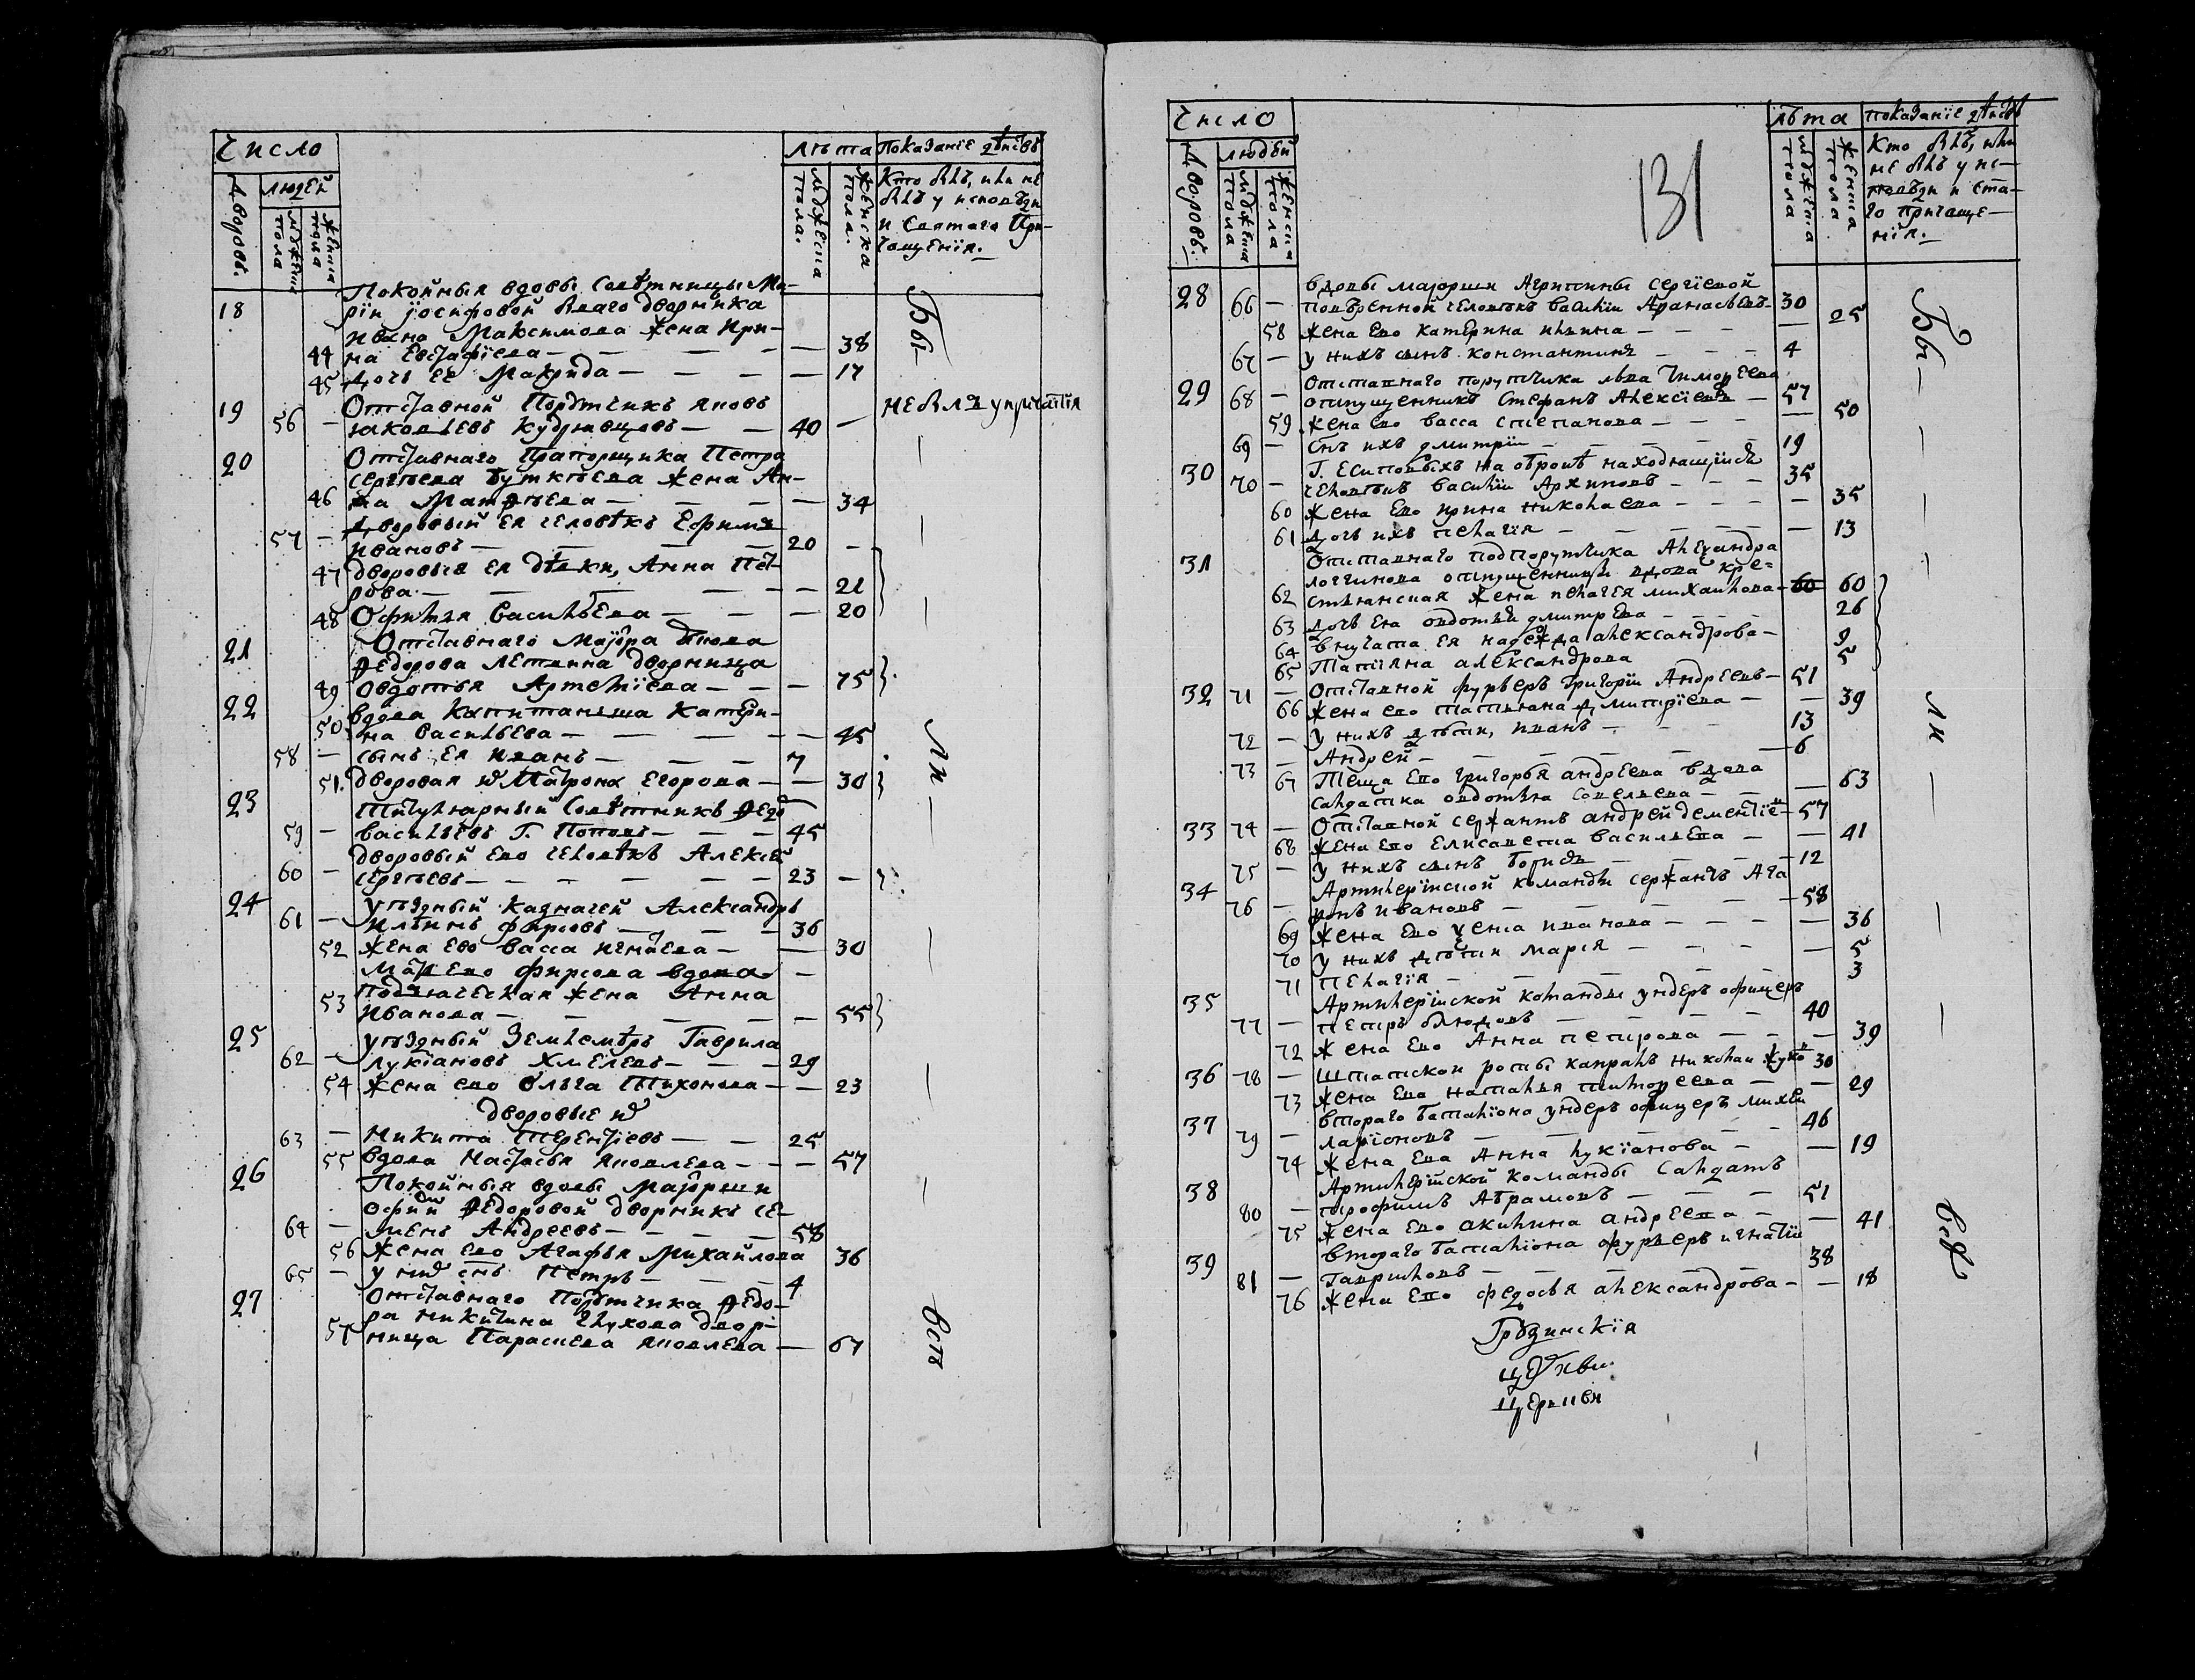 Число
Лѣта Показанїе дѣйсвъ
Дворовъ.
людей
мужеска пола
женска пола
мужеска пола.
женска пола.
Кто былъ, или не
былъ у исповѣди
и Святаго При-
чащенїя.
18 Покойныя вдовы Совѣтницы Ма-
рїи Іосифовой
дворника
Ивана Максимова жена Ири-
44 на Евстафїева — — — — 38
45 Дочь ее Макрида — — — — 17
19 Отставной Порутчикъ Яковъ
56 — Яковлевъ Кудрявцовъ — — 40 — не былъ
20 Отставнаго Прапорщика Петра
Сергѣева жена Ан-
46 на Матфѣева — — — — 34
Дворовый ея человѣкъ Ефимъ
57 — Ивановъ — — — 20 —
47 дворовыя ея дѣвки, Анна Пет-
рова — — — — 21
48 Офимья Васильева — — — 20
21 Отставнаго Маіора
Федорова дворница
49 Овдотья Артемїева — — — 75
22 вдова Капитанша Катери-
50 на Васильева — — — — 45
58 — сынъ ея Иванъ — — — 7
51. дворовая их Матрона Егорова — — 30
23 Титулярный Совѣтникъ Федоръ
59 — Васильевъ Г. Поповъ — — — 45
дворовый ево человѣкъ Алексѣй
60 — Сергѣевъ — — — — — 23 —
24 уѣздный Казначей Александръ
61 — Ильинъ Фирсовъ — — — 36
52 жена ево Васса Игнатьева — — 30
Мать ево Фирсова вдова —
Подьяческая жена Анна
53 Иванова — — — — 55
25 уѣздный Землемѣръ Гаврила
62 — Лукїановъ Хмелевъ — — — 29
54 жена ево Ольга Тихонова — — 23
дворовые их
63 — Никита Терентїевъ — — 25
55 вдова Настасья Яковлева — — — 57
26 Покойныя вдовы Маіорши
Федоровой дворникъ Се-
64 — менъ Андреевъ — — — — 58
56 жена ево Агафья Михайлова 36
65 — у них снъ Петръ — — — 4
27 Отставнаго Порутчика Федо-
ра Никитина Глухова двор-
57 ница Парасковья Яковлева — 67
Бы — — — — ли — — — всѣ
Число
131
лѣта показанїе дѣйсвъ
Дворовъ.
людей
мужеска пола
женска пола
мужеска пола
женска пола
Кто былъ, или
не былъ у ис-
повѣди и Свята-
го причаще-
нїя.
28 вдовы маіорши Агрипины Сергїевой
66 — повѣренной человѣкъ Василїи Афанасьевъ — 30
58 жена ево Катерина Ильина — — — — 25
67 — у нихъ сынъ Константинъ — — — 4
29 Отставнаго порутчика Льва Тимофеева
68 — отпущенникъ Стефанъ Алексїевъ — 57
59 жена ево Васса Степанова — — — — 50
69 — снъ ихъ Дмитрїи — — — — 19
30 Г. Есиповыхъ на оброкѣ находящїися
70 — человѣкъ Василїи Архиповъ — — — 35
60 жена ево Ирина Николаева — — — — 35
61 дочь ихъ Пелагїя — — — — — 13
31 Отставнаго подпорутчика Александра
Логгинова отпущенница вдова кре-
62 стьянская жена Пелагея Михаилова — 60 60
63 дочь ева Овдотья Дмитрева — — — 26
64 внучата ея Надежда Александрова — 9
65 Татїяна Александрова 5
32 71 — Отставной фурьеръ Григорїи Андреевъ — 51
66 жена ево Татьяна Дмитрїева — — 39
72 — у нихъ дѣти, Иванъ — — 13
73 — Андрей — — — — — — 6
67 Теща ево Григорья Андреева вдова
салдатка Овдотья Савельева — — — 63
33 74 — Отставной сержантъ Андрей Дементїевъ — 57
68 жена ево Елисавета Васильева — — 41
75 — у нихъ сынъ Борисъ — — — — 12
34 Артилерїиской команды сержантъ Ага-
76 — фонъ Ивановъ — — — — 58
69 жена ево Иванова — — — — 36
70 у нихъ дѣти Марїя — — — — 5
71 Пелагїя — — — — — 3
35 Артилерїиской команды ундеръ офицеръ
77 — Петръ — — — — 40
72 жена ево Анна Петрова — — — 39
36 78 — штатской роты капралъ Николаи Жуковъ 30
73 жена ева Наталья Тимофеева — — 29
37 втораго баталїона ундеръ офицеръ Михеи
79 — Ларїоновъ — — — — — 46
74 жена ева Анна Лукїанова — — 19
38 Артилерїйской команды салдатъ
80 — Трофимъ Абрамовъ — — — 51
75 жена ево Акилина Андреева — — 41
39 втораго баталїона фурьеръ Игнатїи
81 — Гавриловъ — — — — 38
76 жена ево Федосья Александрова — — 18
Грузинскїя
церкви
Бы — — — — ли — — — всѣ